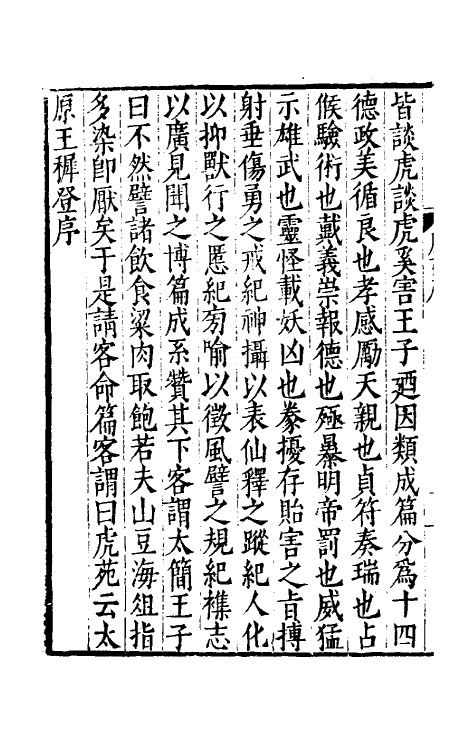 皆談虎談虎奚害王子廼因類成篇分為十四
德政美循良也孝感勵天親也貞符奏瑞也占
候驗術也戴義崇報德也殛暴明帝罰也威猛
示雄武也靈怪載妖凶也豢擾存貽害之㫖搏
射垂傷勇之戒紀神攝以表仙釋之蹤紀人化
以抑獸行之慝紀旁喻以徵風譬之規紀襍志
以廣見聞之博篇成系贊其下客謂太簡王子
曰不然譬諸飲食粱肉取飽若夫山豆海俎指
多染卽厭矣于是請客命篇客謂曰虎苑云太
原王穉登序